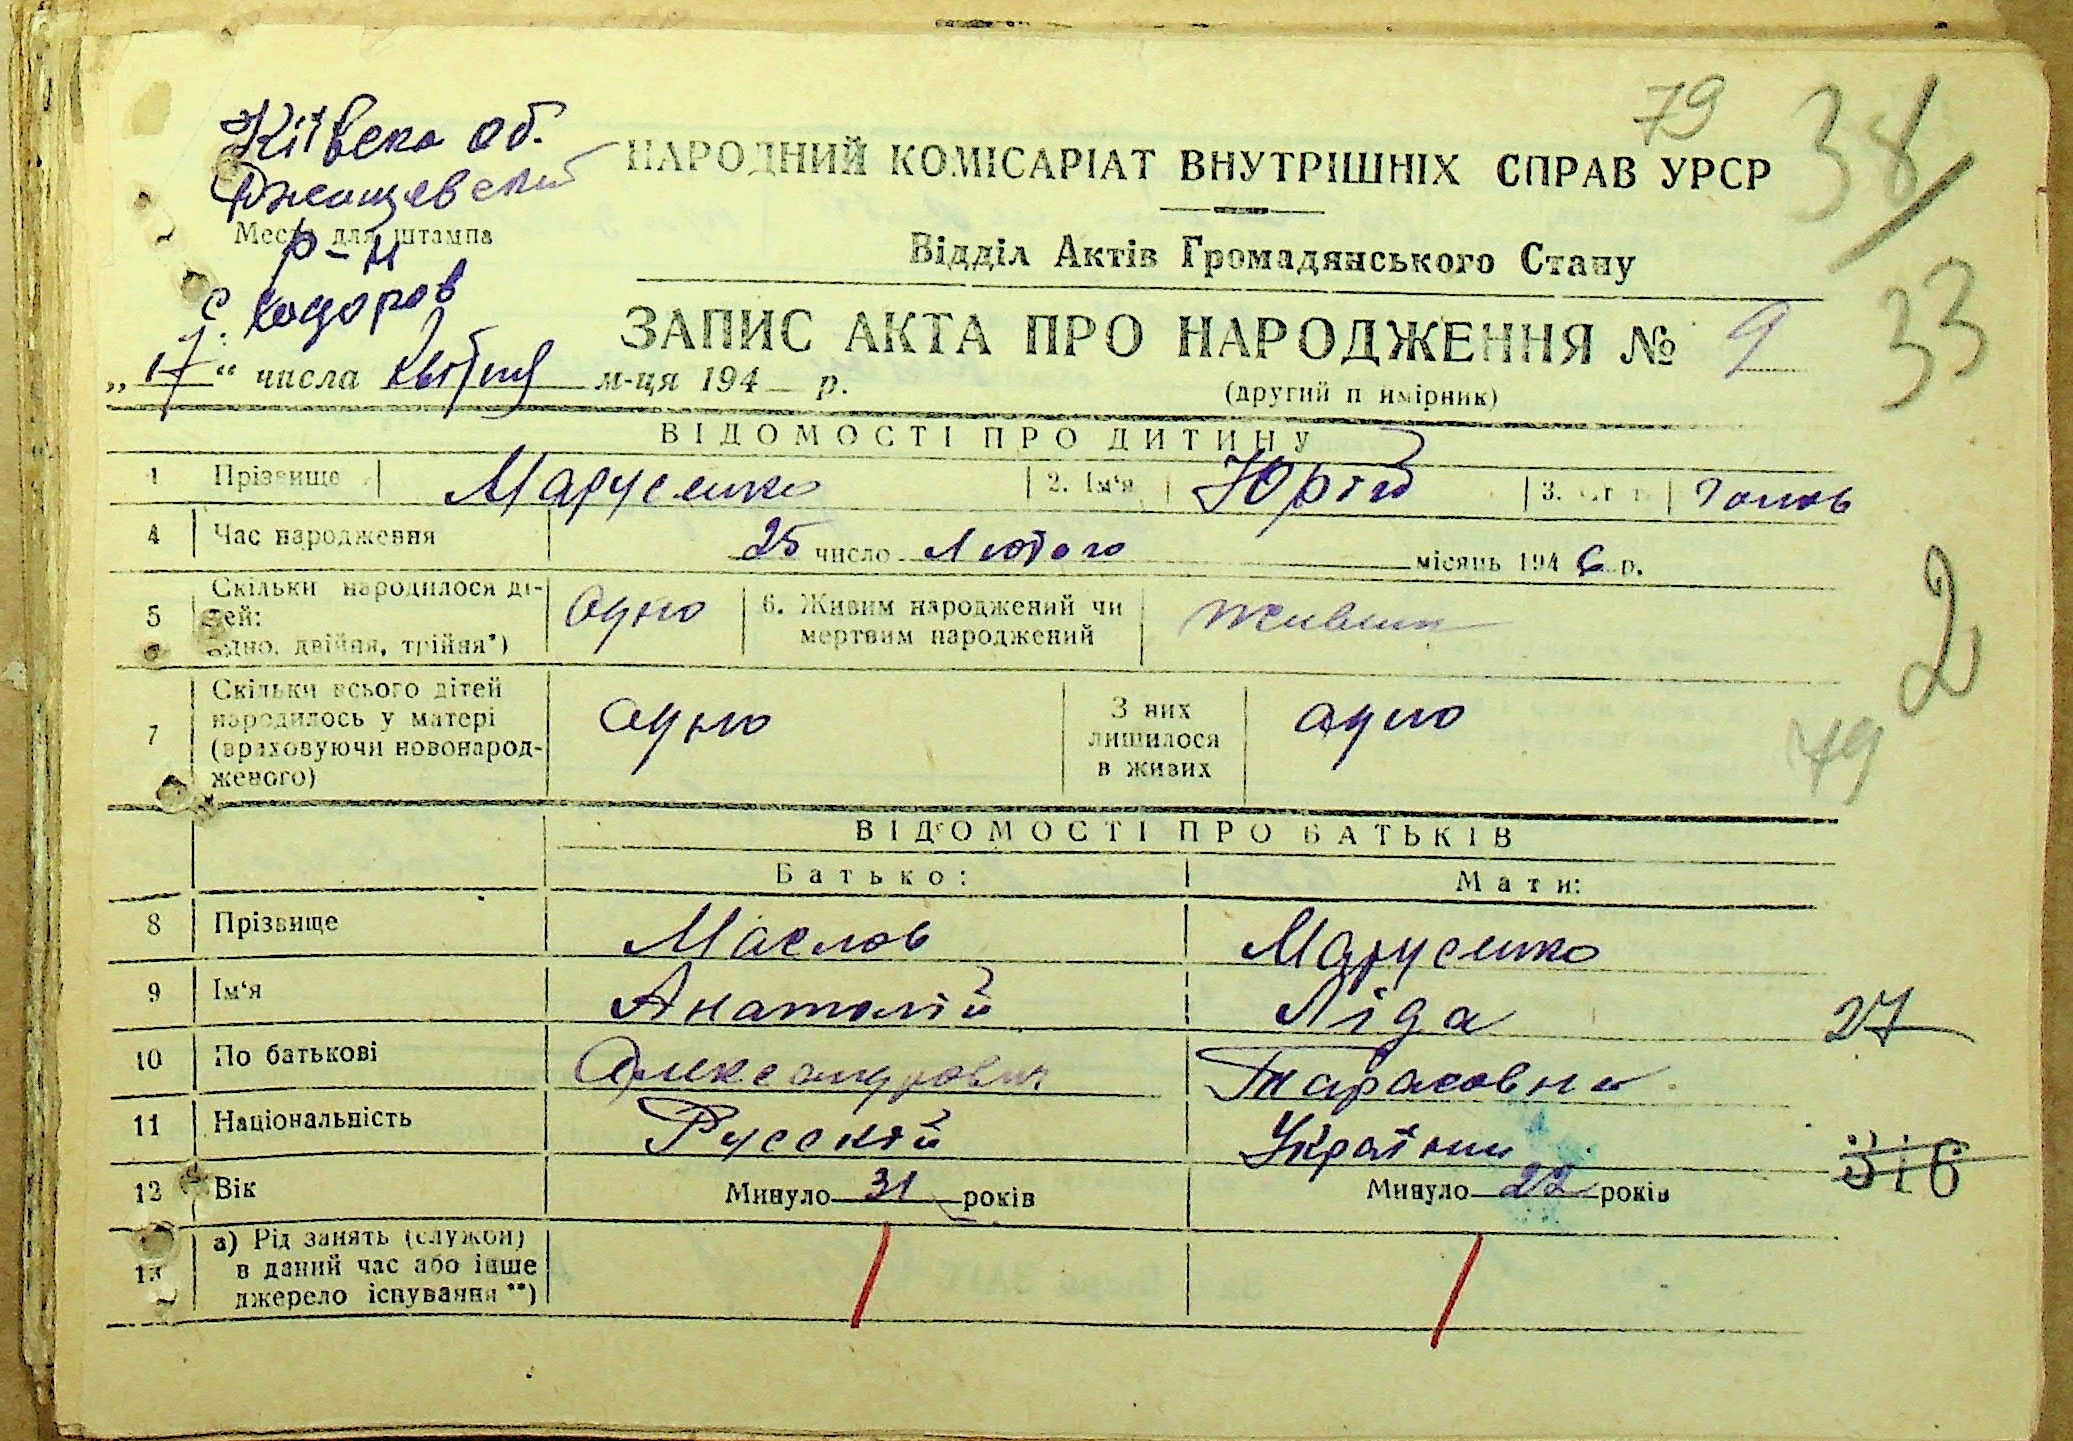 79
38/
33
Київска об.
Ржищевский
р-н
с. Ходоров
Место для штампа
НАРОДНИЙ КОМІСАРІАТ ВНУТРІШНІХ СПРАВ УРСР
Відділ Актів Громадянського Стану
ЗАПИС АКТА ПРО НАРОДЖЕННЯ № 9
„17“ числа Квітня м-ця 194 р.
(другий п имірник)
ВІДОМОСТІ ПРО ДИТИНУ
1 Прізвище Марусенко 2. Ім'я Юрій 3.
4 Час народження 25 число Лютого місяць 1946 р.
5 Скільки народилося ді-
тей:
одно, двійня, трійня*)
одно
6. Живим народжений чи
мертвим народжений
живим
2
7 Скільки всього дітей
народилось у матері
(враховуючи новонарод-
женого)
одно
З них
лишилося
в живих
одно
79
ВІДОМОСТІ ПРО БАТЬКІВ
Батько: Мати:
8 Прізвище Маслов Марусенко
9 Ім'я Анатолій Ліда
27
10 По батькові Александрович Тарасовна
11 Національність Русский Українк
316
12 Вік Минуло 31 років Минуло 22 років
13 а) Рід занять (служби)
в даний час або інше
джерело існування **)